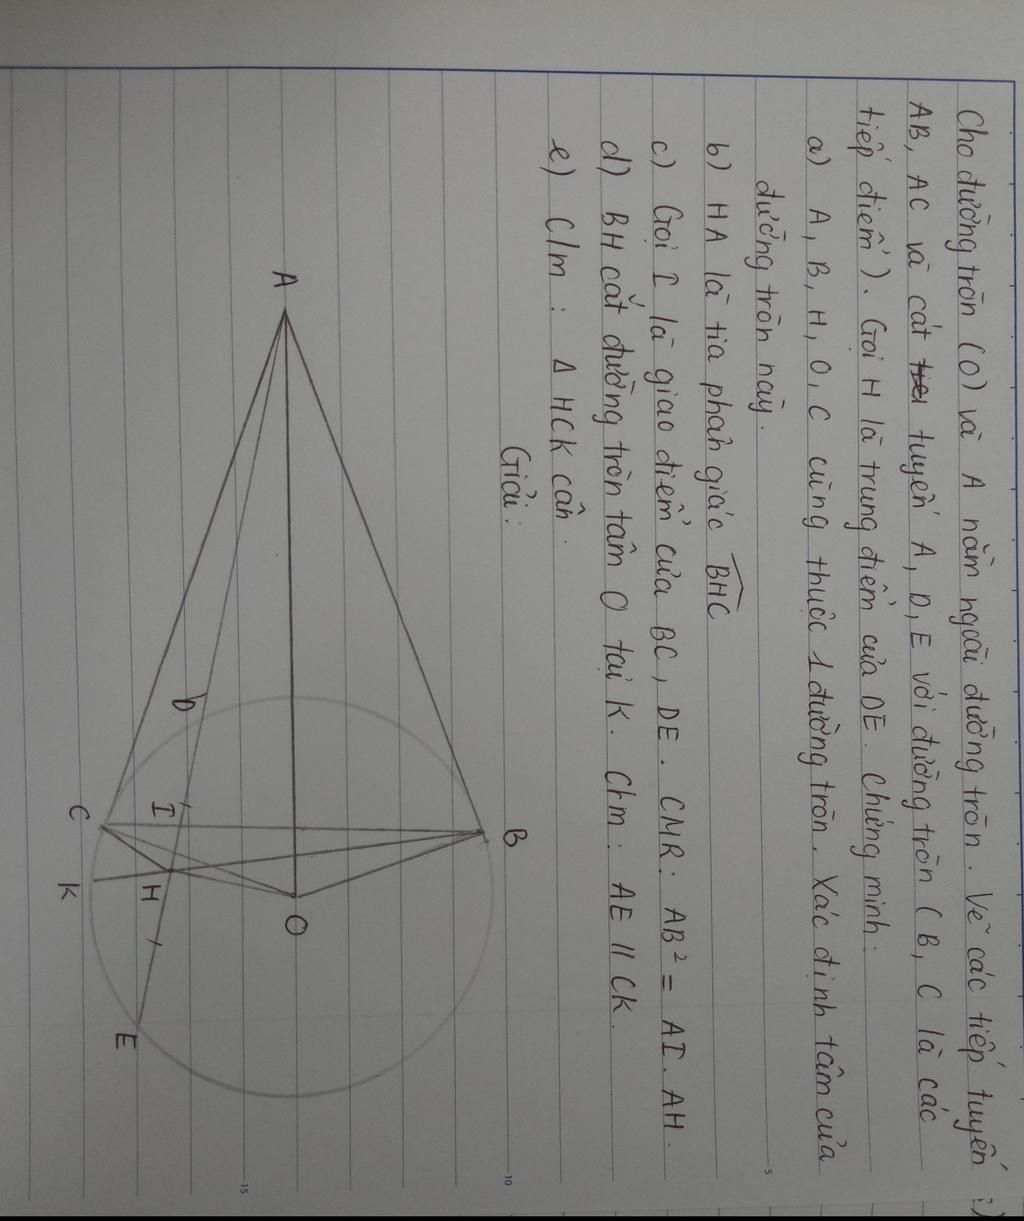 Cho đường tròn (O) và A nằm ngoài đường tròn. Vẽ các tiếp tuyến
AB, AC và cát tuyến A, D, E với đường tròn (B, C là các
tiếp điểm). Gọi H là trung điểm của DE. Chứng minh:
a) A, B, H, O, C cùng thuộc 1 đường tròn. Xác định tâm của
đường tròn này.
b) HA là tia phân giác BHC
c) Gọi I là giao điểm của BC, DE. CMR: AB² = AI.AH.
d) BH cắt đường tròn tâm O tại K. C/m: AE // CK.
e) C/m: Δ HCK cân.
Giải:
A
B
D
I
C
O
H
K
E
5
10
15